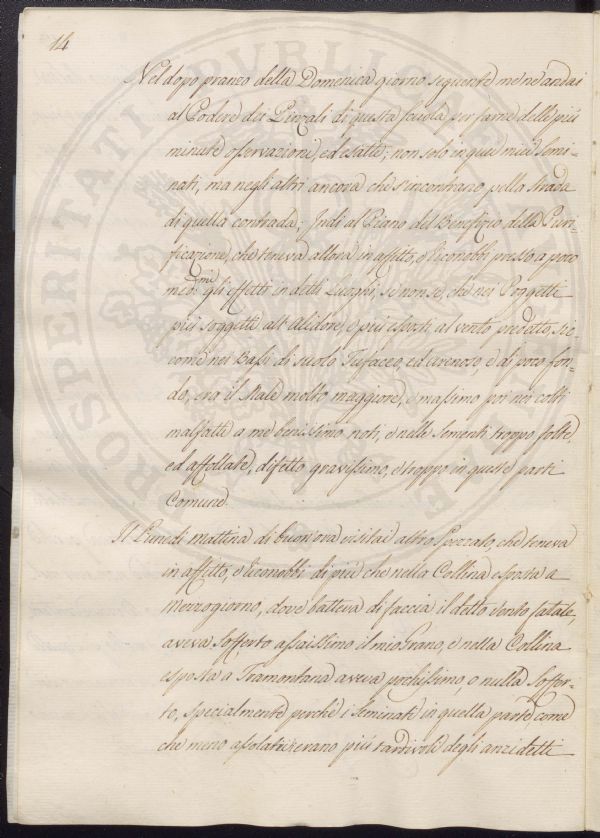 14
Nel dopo pranzo della Domenica giorno seguente me ne andai
al Podere dei di questa Scuola per farne delle più
minute osservazioni, ed esatte; non solo in quei miei Semi-
nati, ma negli altri ancora che s'incontrano nella Strada
di quella contrada; Indi al Piano del Benefizio della Puri-
ficazione, che teneva allora in affitto, e riconobbi presso a poco
med:mi gli effetti in detti Luoghi, se non se, che nei Poggetti
più soggetti all'Alidore, e più esposti al vento predetto, sic-
come nei Bassi di suolo Tufaceo, ed arenoso, e di poco fon-
do, era il Male molto maggiore, e massimo poi nei colti
malfatti a me benissimo noti, e nelle sementi troppo folte,
ed affollate, difetto gravissimo, e troppo in queste parti
Comune.
Il Lunedì mattina di buon'ora visitai altro Pezzato, che teneva
in affitto, e riconobbi di più che nella Collina esposta a
Mezzogiorno, dove batteva di faccia il detto Vento fatale,
aveva Sofferto assaissimo il mio Grano, e nella Collina
esposta a Tramontana aveva pochissimo, o nulla Soffer-
to, specialmente perchè i Seminati in quella parte come
che meno assolatii erano più tardivoli degli anzidetti
PROSPERITATI PVBLICAE